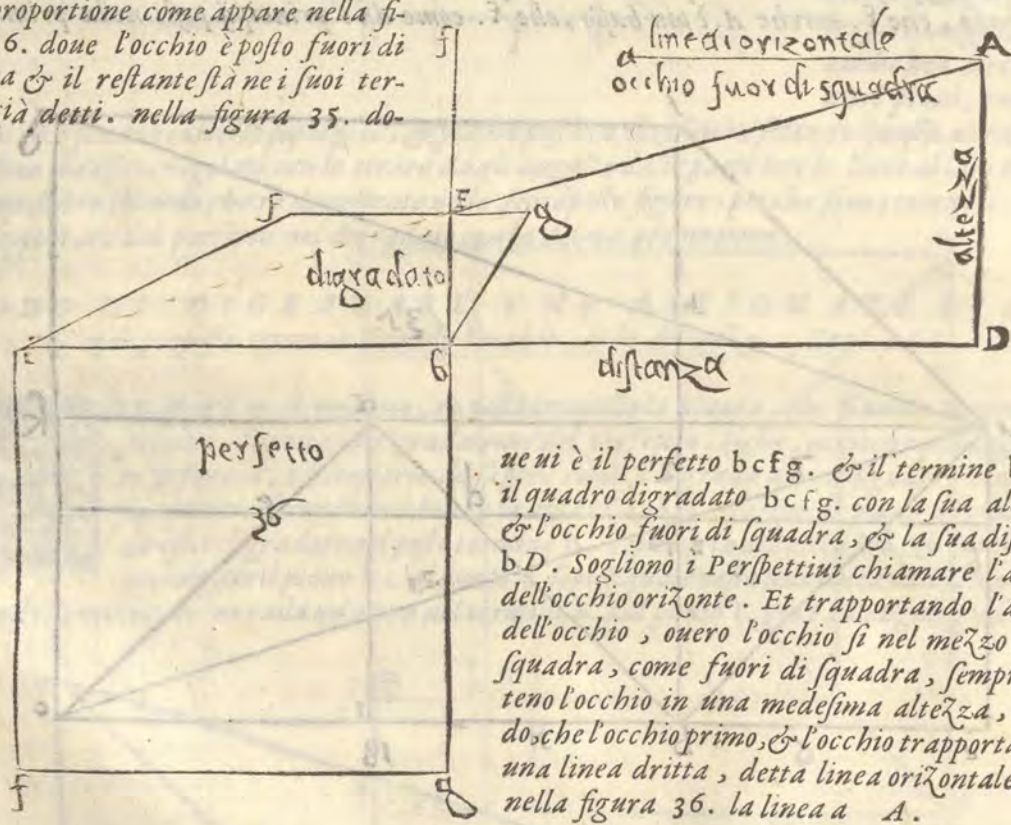 proportione come appare nella fi-
6. doue l'occhio è posto fuori di
a & il restante stà ne i suoi ter-
ià detti. nella figura 35. do-
f
linea orizontale
a
A
occhio fuor di squadra
altezza
f
E
g
digradato
c
b
distanza
D
perfetto
36
f
g
ue ui è il perfetto bcfg. & il termine
il quadro digradato bcfg. con la sua al
& l'occhio fuori di squadra, & la sua dis
b D. Sogliono i Perspettiui chiamare l'a
dell'occhio orizonte. Et trapportando l'a
dell'occhio, ouero l'occhio si nel mezzo
squadra, come fuori di squadra, sempr
teno l'occhio in una medesima altezza,
do, che l'occhio primo, & l'occhio trapporta
una linea dritta, detta linea orizontale
nella figura 36. la linea a A.